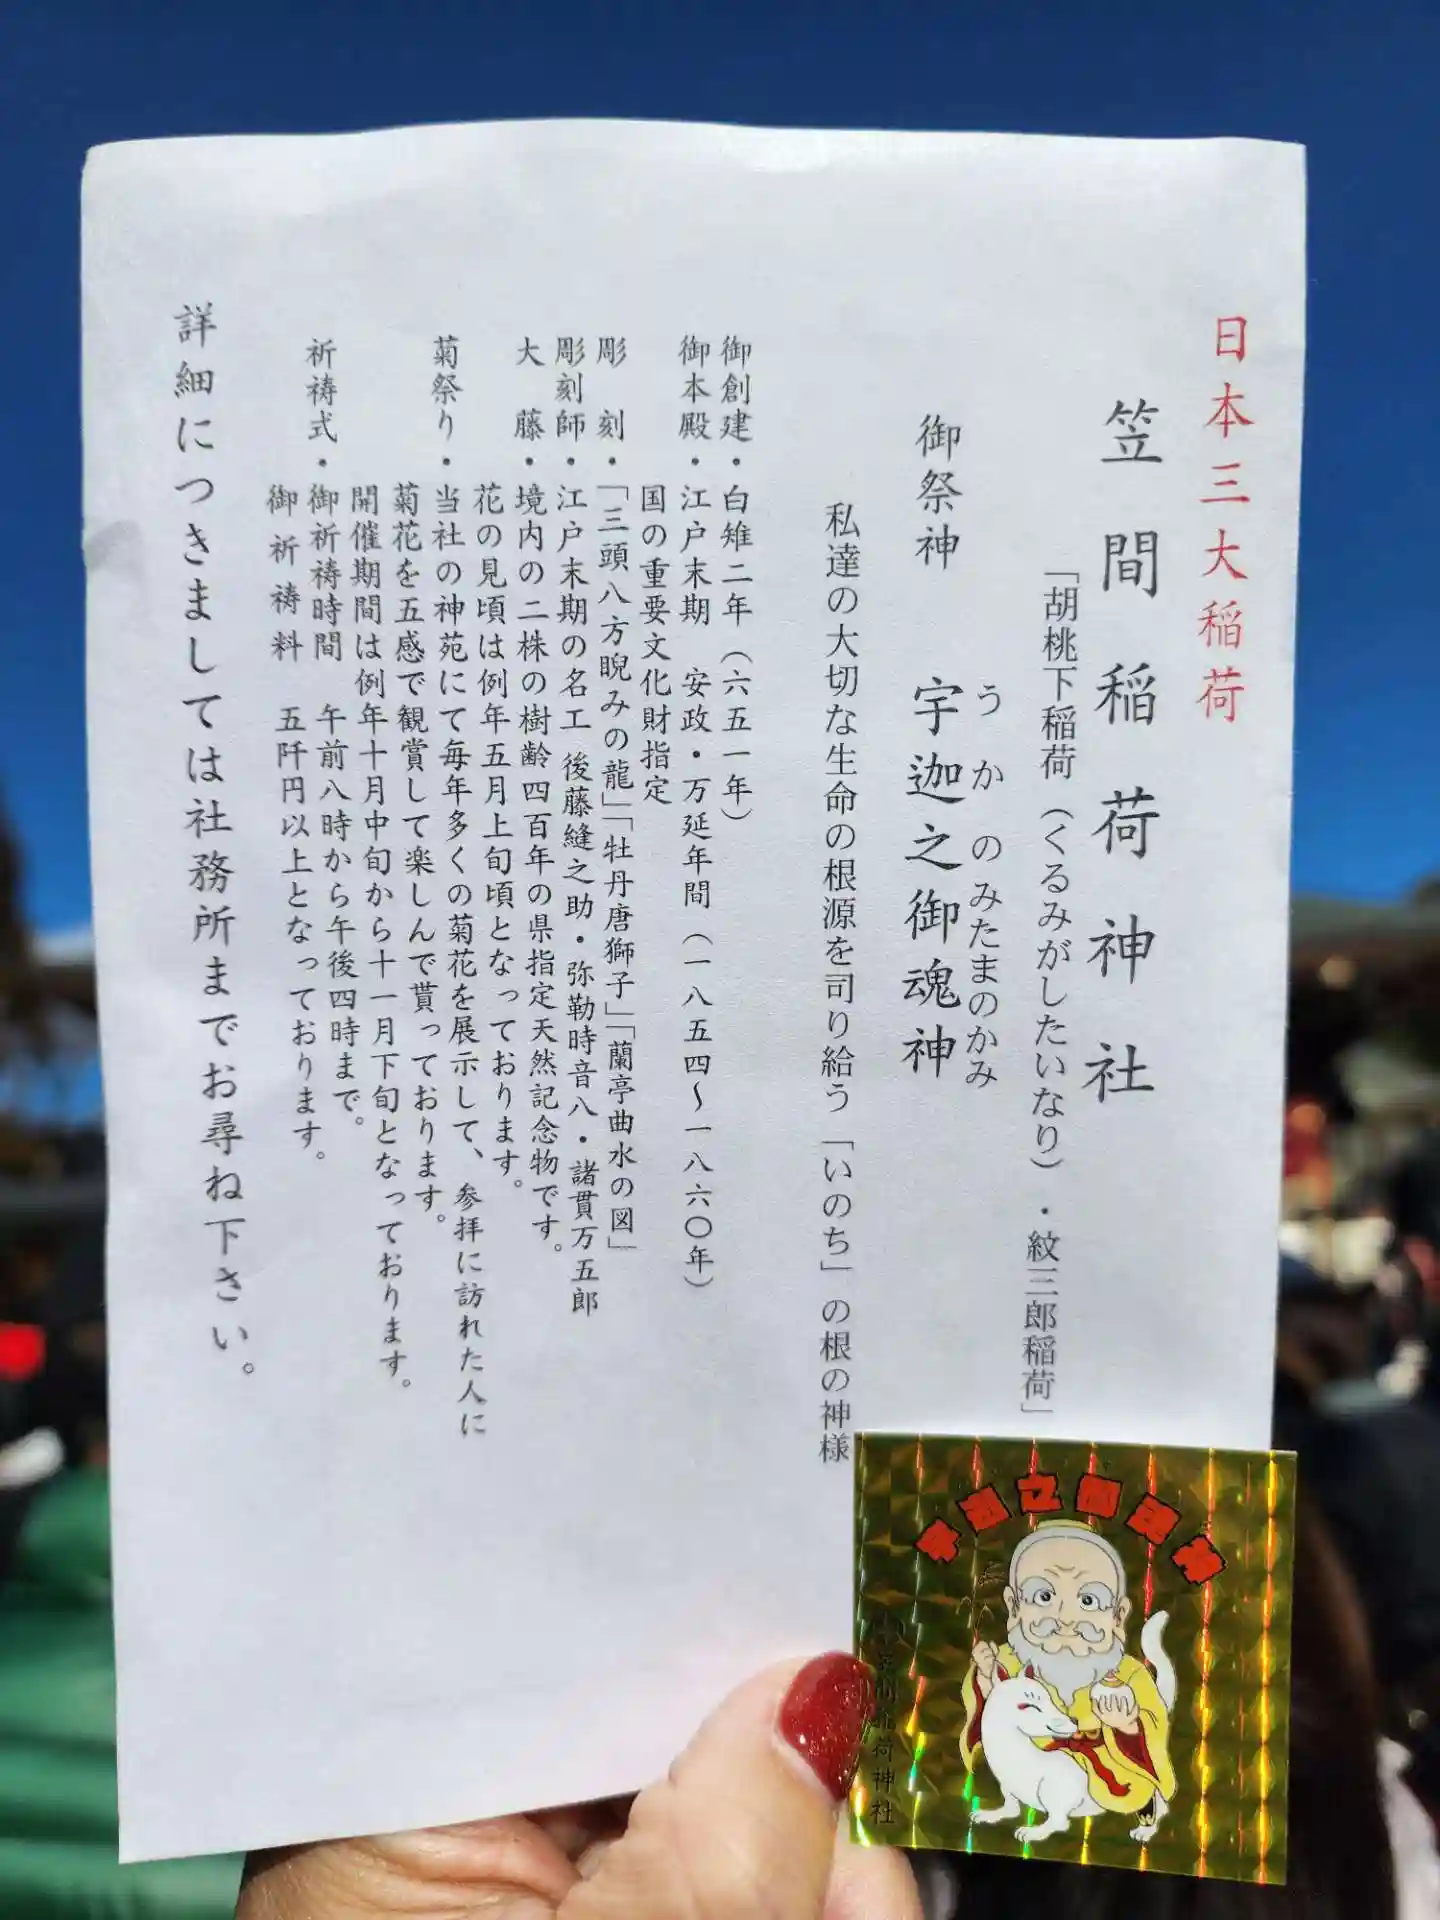 日本三大稲荷
笠間稲荷神社
「胡桃下稲荷（くるみがしたいなり）・紋三郎稲荷」
うかのみたまのかみ
御祭神　宇迦之御魂神
私達の大切な生命の根源を司り給う「いのち」の根の神様
御創建・白雉二年（六五一年）
御本殿・江戸末期　安政・万延年間（一八五四～一八六〇年）
国の重要文化財指定
彫　刻・「三頭八方睨みの龍」「牡丹唐獅子」「蘭亭曲水の図」
彫刻師・江戸末期の名工　後藤縫之助・弥勒時音八・諸貫万五郎
大　藤・境内の二株の樹齢四百年の県指定天然記念物です。
花の見頃は例年五月上旬頃となっております。
菊祭り・当社の神苑にて毎年多くの菊花を展示して、参拝に訪れた人に
菊花を五感で観賞して楽しんで貰っております。
開催期間は例年十月中旬から十一月下旬となっております。
祈祷式・御祈祷時間　午前八時から午後四時まで。
御祈祷料　五阡円以上となっております。
詳細につきましては社務所までお尋ね下さい。
宇迦之御魂神
笠間稲荷神社